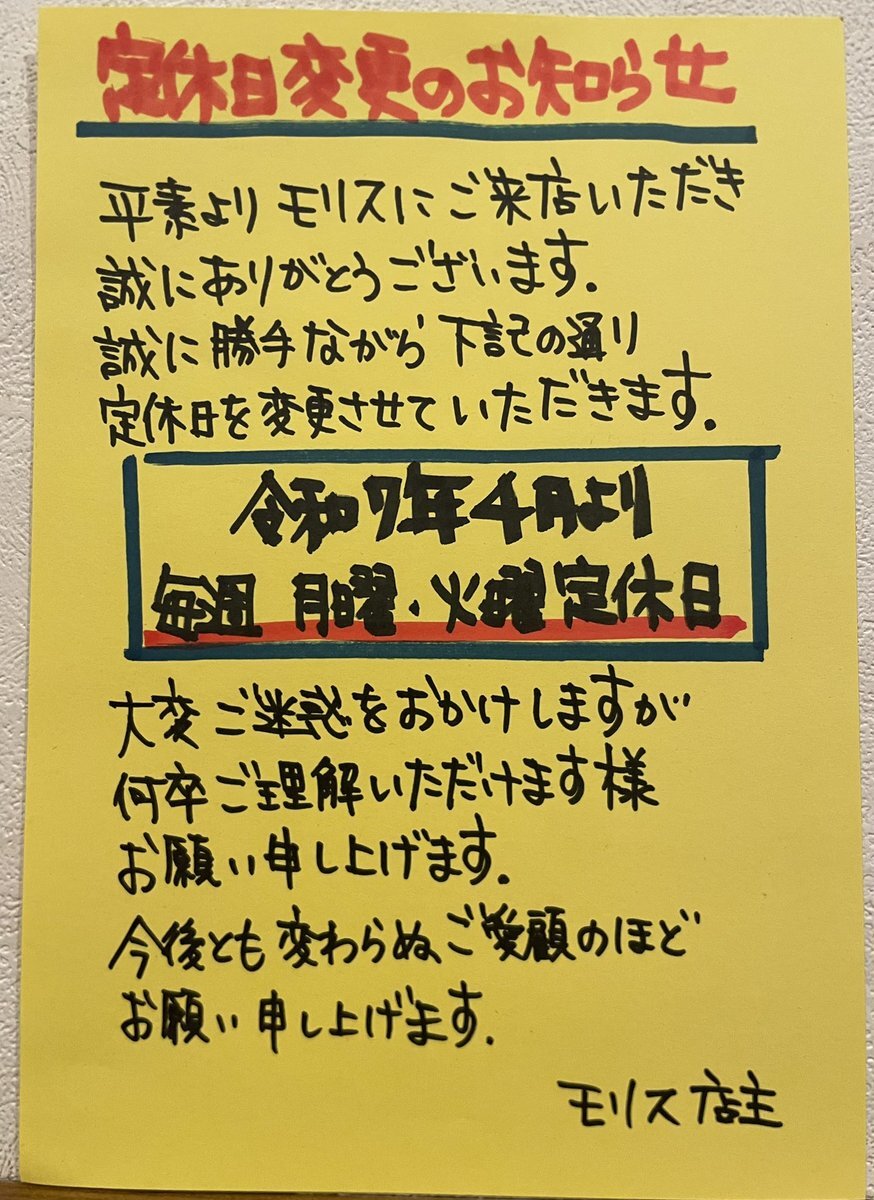 定休日変更のお知らせ
平素よりモリスにご来店いただき
誠にありがとうございます.
誠に勝手ながら 下記の通り
定休日を変更させていただきます.
令和7年4月より
毎週 月曜・火曜定休日
大変ご迷惑をおかけしますが
何卒ご理解いただけます様
お願い申し上げます.
今後とも変わらぬ、ご愛顧のほど
お願い申し上げます.
モリス 店主